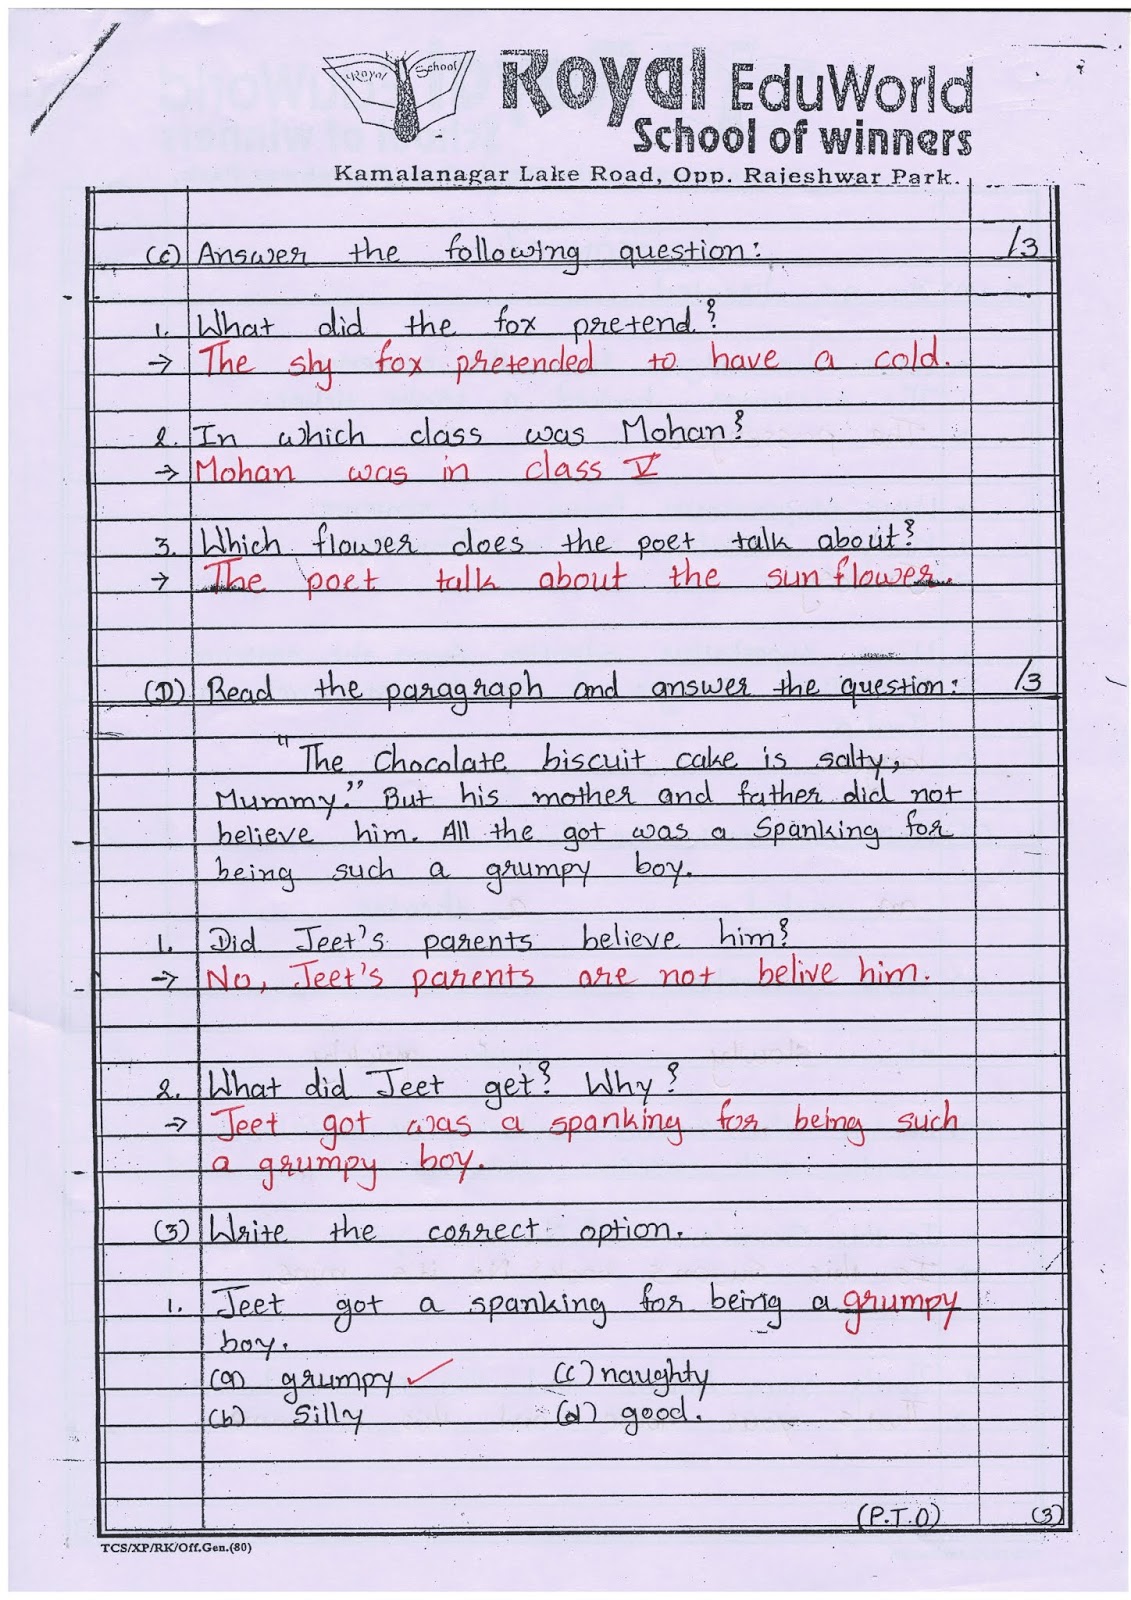 Royal School
Royal EduWorld
School of winners
Kamalanagar Lake Road, Opp. Rajeshwar Park.
(C) Answer the following question: /3
1. What did the fox pretend?
→ The shy fox pretended to have a cold.
2. In which class was Mohan?
→ Mohan was in class V
3. Which flower does the poet talk about?
→ The poet talk about the sunflower.
(D) Read the paragraph and answer the question: /3
"The Chocolate biscuit cake is salty,
Mummy." But his mother and father did not
believe him. All the got was a Spanking for
being such a grumpy boy.
1. Did Jeet's parents believe him?
→ No, Jeet's parents are not belive him.
2. What did Jeet get? Why?
→ Jeet got was a spanking for being such
a grumpy boy.
(3) Write the correct option.
1. Jeet got a spanking for being a grumpy
boy.
(a) grumpy ✓ (c) naughty
(b) Silly (d) good.
(P.T.O) (3)
TCS/XP/RK/Off.Gen.(80)